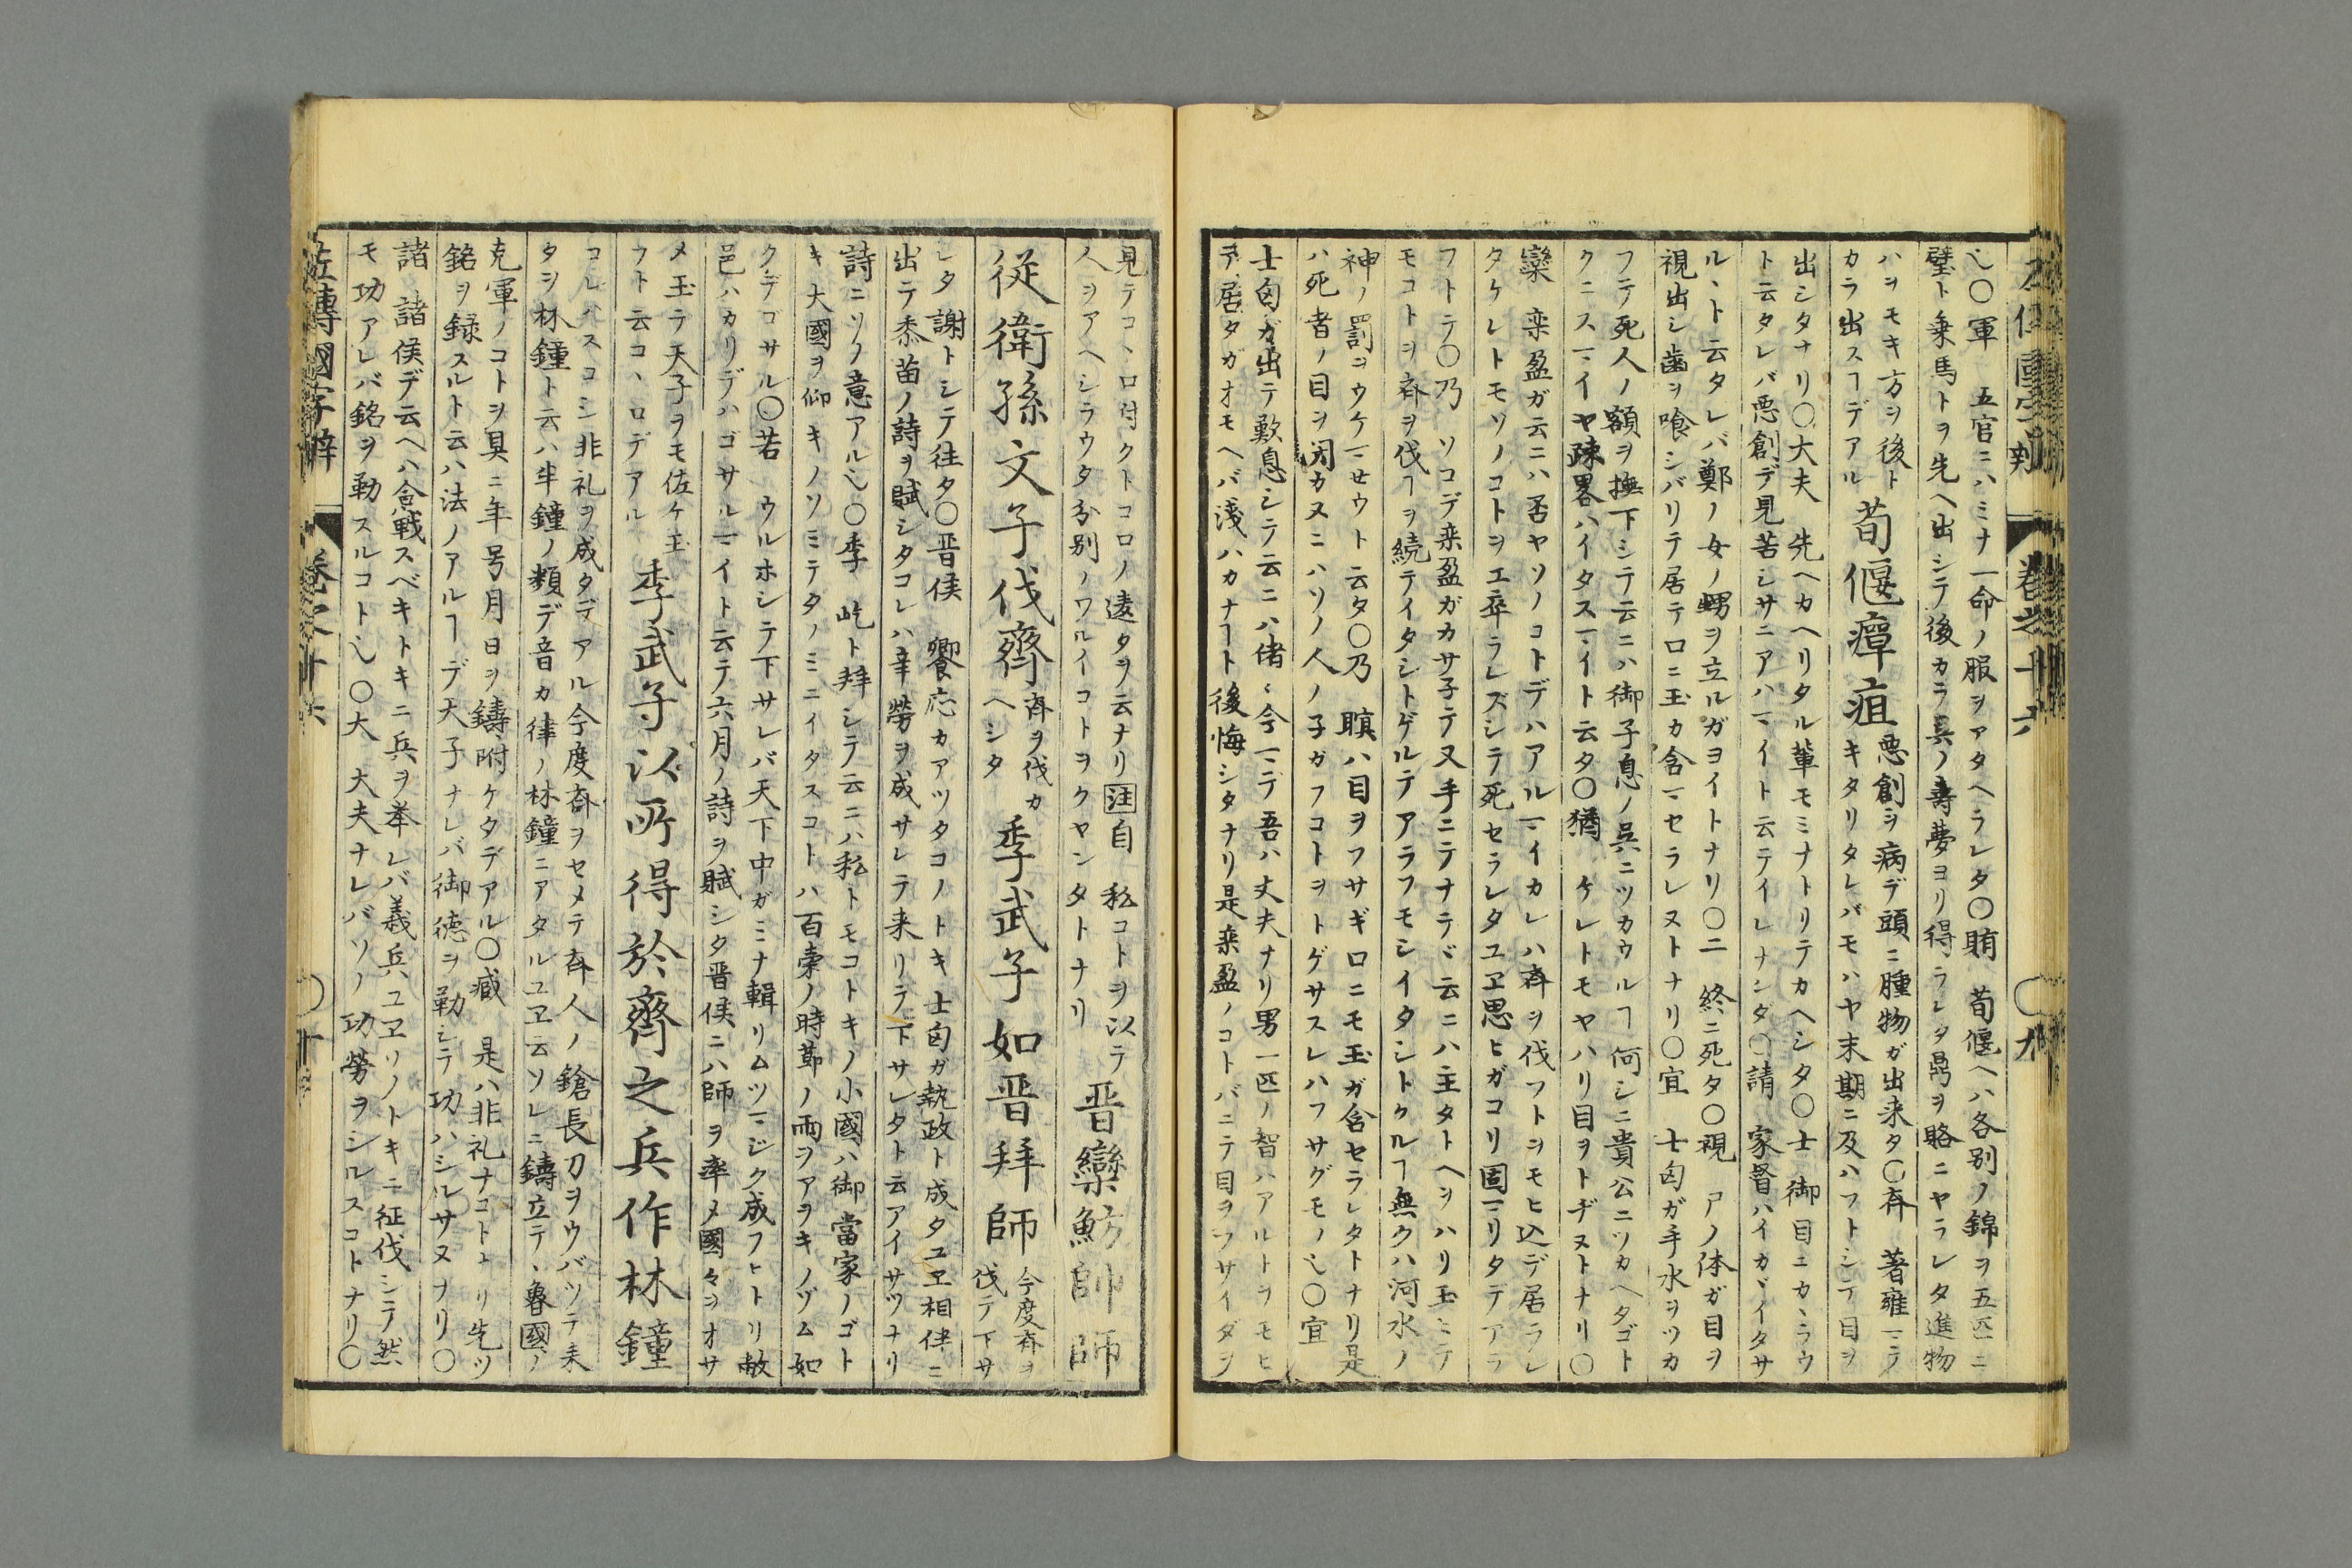 乀〇軍　五官ニハミナ一命ノ服ヲアタヘラレタ〇賄　荀偃ヘハ各別ノ錦ヲ五匹ニ
璧ト乗馬トヲ先ヘ出シテ後カラ呉ノ壽夢ヨリ得ラレタ鼎ヲ賂ニヤラレタ進物
ハヲモキ方ヲ後ト
カラ出スヿデアル
荀偃癉疽
悪創ヲ病デ頭ニ腫物ガ出来タ〇斉　著雍マテ
キタリタレバモハヤ末期ニ及ハフトシテ目ヲ
出シタナリ〇大夫　先ヘカヘリタル輩モミナトリテカヘシタ〇士　御目ニカヽラウ
ト云タレバ悪創デ見苦シサニアハマイト云テイレナンダ〇請　家督ハイカヾイタサ
ルヽト云タレバ鄭ノ女ノ甥ヲ立ルガヨイトナリ〇二　終ニ死タ〇視　アノ体ガ目ヲ
視出シ歯ヲ喰シバリテ居テ口ニ玉カ含マセラレヌトナリ〇宜　士匄ガ手水ヲツカ
フテ死人ノ額ヲ撫下シテ云ニハ御子息ノ呉ニツカウルヿ何シニ貴公ニツカヘタゴト
クニスマイヤ踈畧ハイタスマイト云タ〇猶　ケレトモヤハリ目ヲトヂヌトナリ〇
欒　栾盈ガ云ニハ否ヤソノコトデハアルマイカレハ斉ヲ伐フトヲモヒ込デ居ラレ
タケレトモソノコトヲエ卒ラレズシテ死セラレタユヱ思ヒガコリ固マリタデアラ
フトテ〇乃　ソコデ栾盈ガカサ子テ又手ニテナテヽ云ニハ主タトヘヲハリ玉ヒテ
モコトヲ斉ヲ伐ヿヲ続テイタシトゲルテアラフモシイタシトケルヿ無クハ河水ノ
神ノ罰ヲウケマせウト云タ〇乃　瞑ハ目ヲフサギロニモ玉ガ含セラレタトナリ是
ハ死者ノ目ヲ閉カヌニハソノ人ノ子ガフコトヲトゲサスレハフサグモノ乀〇宜
士匄ガ出テ歎息シテ云ニハ偖〻今マデ吾ハ丈夫ナリ男一匹ノ智ハアルトヲモヒ
テ居タガオモヘバ淺ハカナヿト後悔シタナリ是栾盈ノコトバニテ目ヲフサイダヲ
見テコヽロ付クトコロノ遠タヲ云ナリ注自　私コトヲ以テ
人ヲアヘシラウタ分別ノワルイコトヲクヤンタトナリ
晋欒魴帥師
従衛孫文子伐齊
斉ヲ伐カ
ヘシタ
季武子如晋拜師
今度斉ヲ
伐テ下サ
レタ謝トシテ往タ〇晋侯　饗応カアツタコノトキ士匄ガ執政ト成タユヱ相伴ニ
出テ黍苗ノ詩ヲ賦シタコレハ辛勞ヲ成サレテ来リテ下サレタト云アイサツナリ
詩ニソノ意アル乀〇季　屹ト拜シテ云ニハ私トモコトキノ小國ハ御當家ノゴト
キ大國ヲ仰キノソミテタノミニイタスコトハ百穀ノ時節ノ雨ヲアヲキノゾム如
クデゴサル〇若　ウルホシテ下サレバ天下中ガミナ輯リムツマジク成フヒトリ敝
邑ハカリデハゴサルマイト云テ六月ノ詩ヲ賦シタ晋侯ニハ師ヲ率メ國々ヲオサ
メ玉ラ天子ヲモ佐ケ玉
フト云コヽロデアル
季武子以所得於齊之兵作林鐘
コレハスコシ非礼ヲ成タデアル今度斉ヲセメテ斉人ノ鎗長刀ヲウバツテ来
タヲ林鐘ト云ハ半鐘ノ類デ音カ律ノ林鐘ニアタルユヱ云ソレニ鑄立テヽ魯國ノ
克軍ノコトヲ具ニ年号月日ヲ鑄附ケタデアル〇臧　是ハ非礼ナコトヽリ先ツ
銘ヲ録スルト云ハ法ノアルヿデ天子ナレバ御徳ヲ勒シテ功ハシルサヌナリ〇
諸　諸侯デ云ヘハ合戦スベキトキニ兵ヲ举レバ義兵ユヱソノトキニ征伐シテ然
モ功アレバ銘ヲ勒スルコト乀〇大　大夫ナレバソノ功勞ヲシルスコトナリ〇
左傳國字辯　巻之十六　〇十